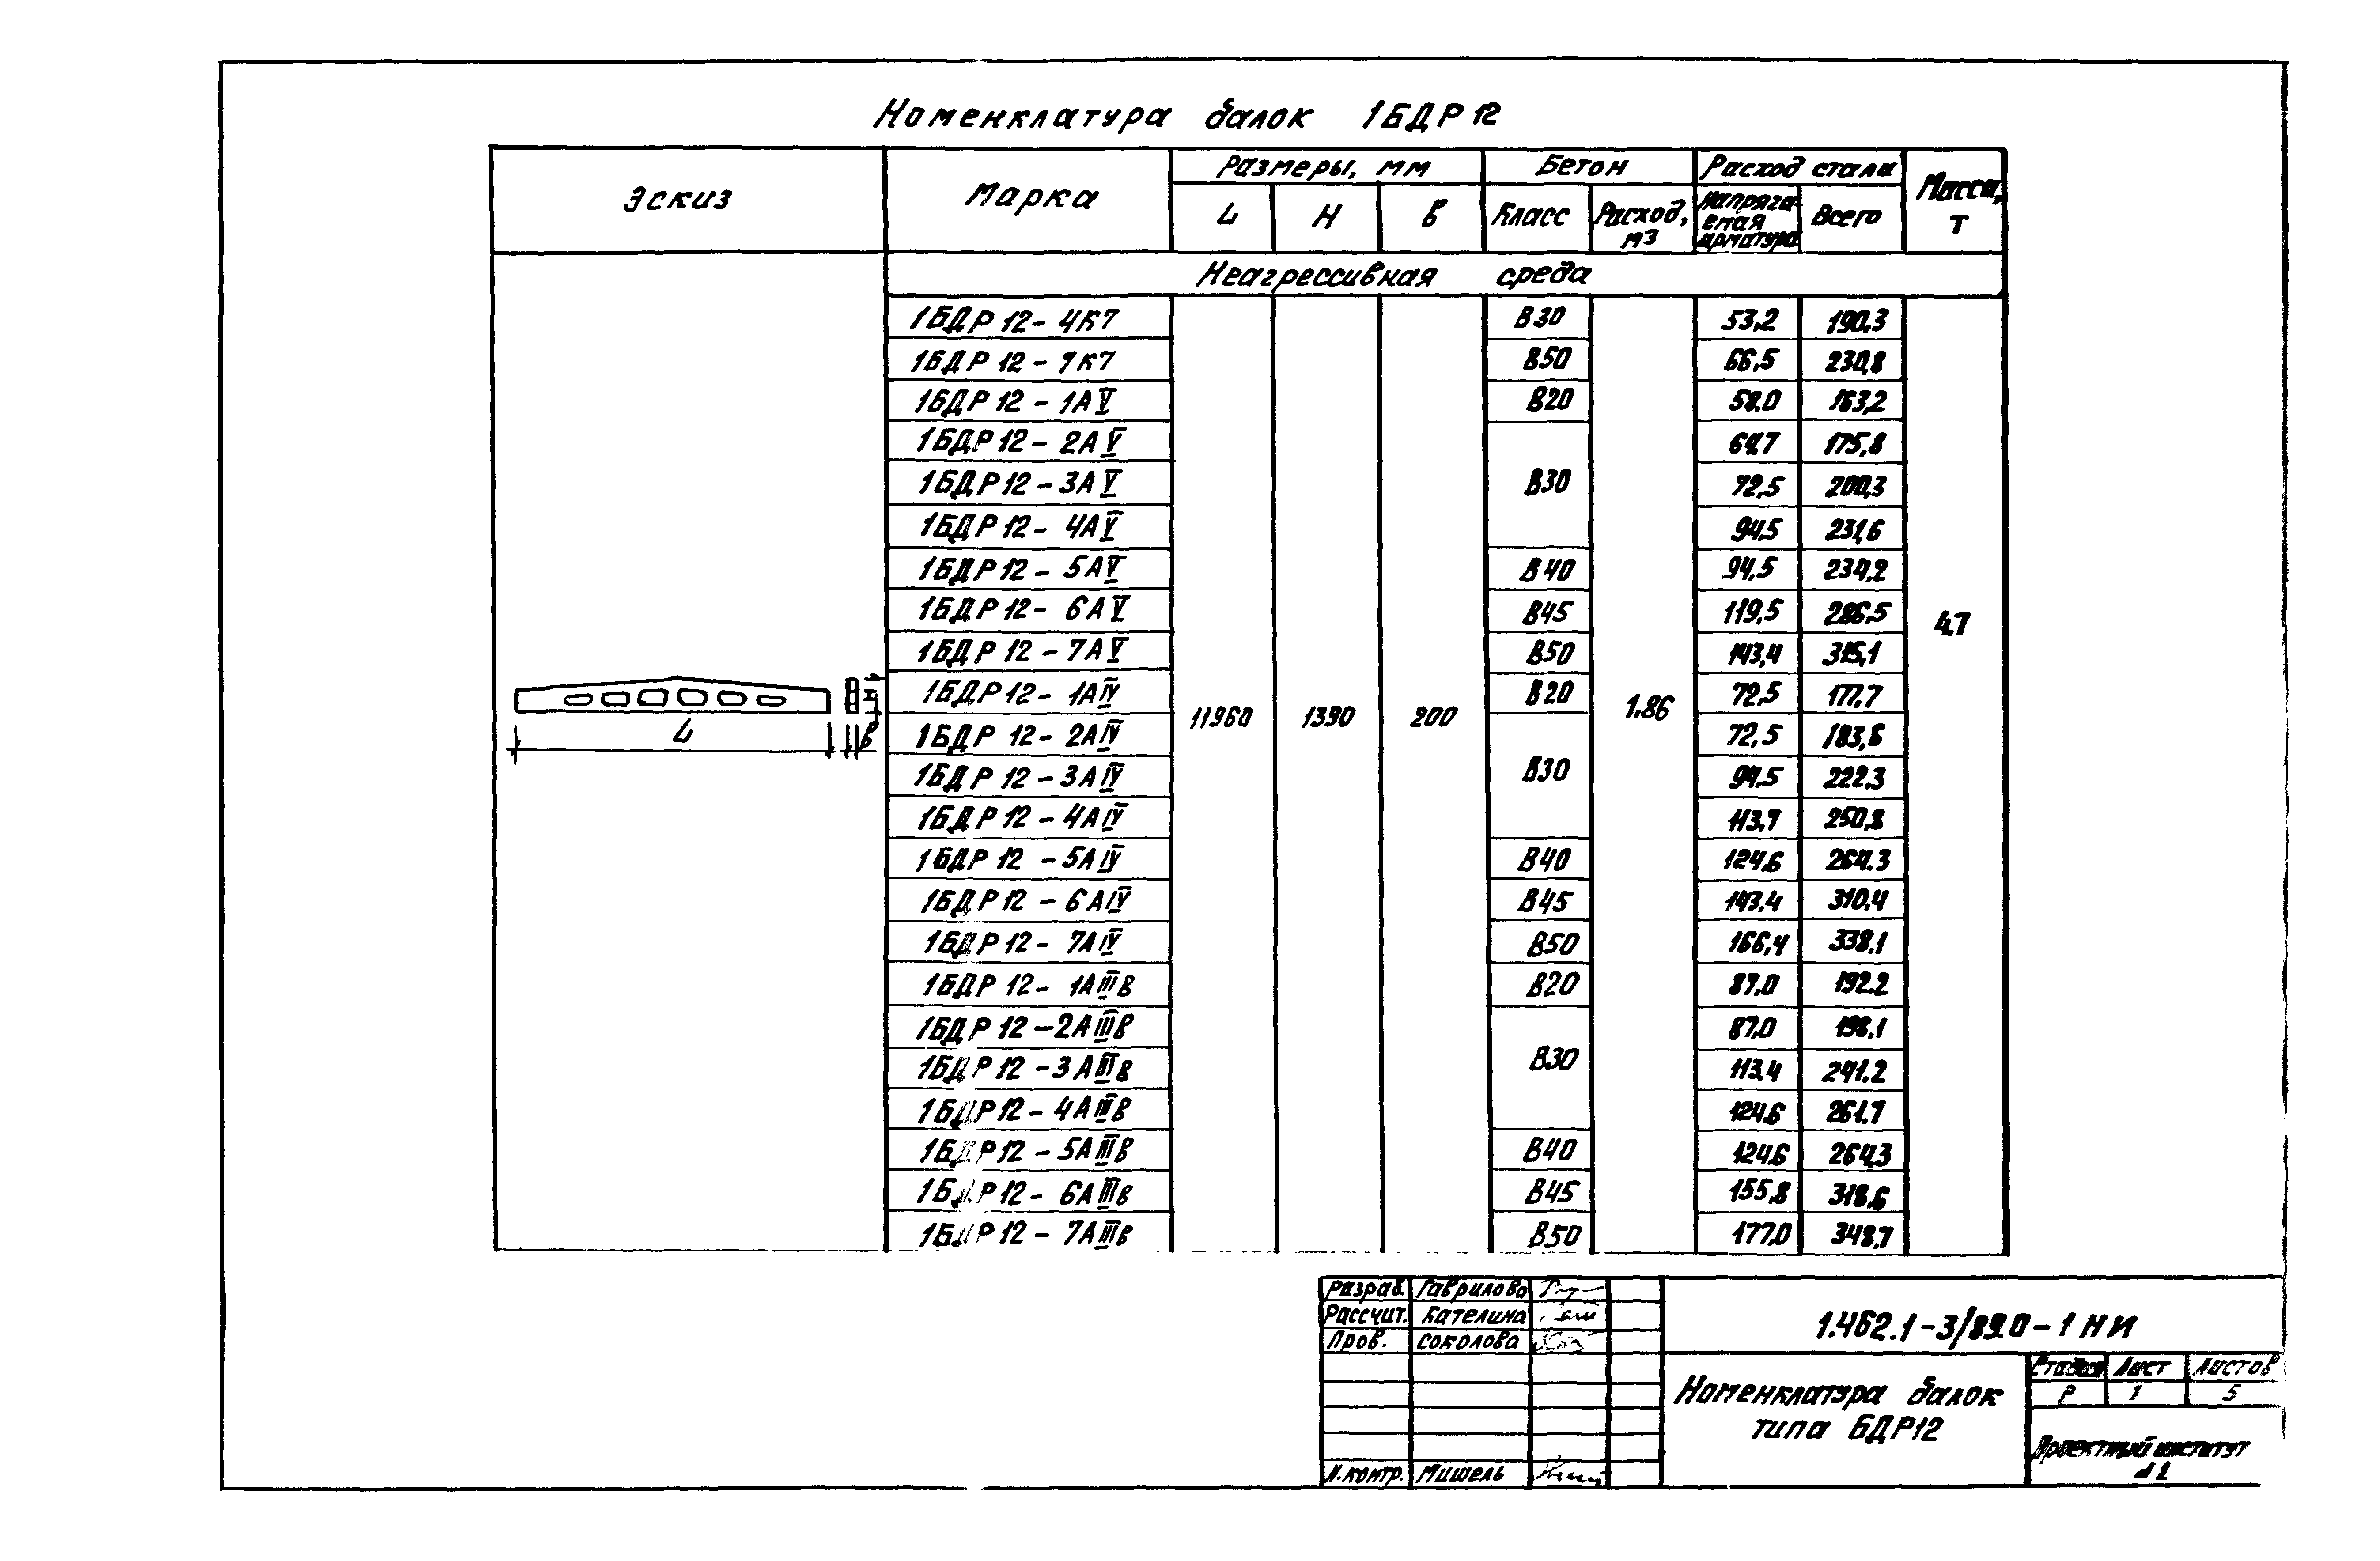 Номенклатура балок 1БДР12
Эскиз Марка Размеры, мм Бетон Расход стали Масса, т
L Н В Класс Расход, м3 Напряга- емая арматура Всего
Неагрессивная среда
1БДР12-4К7 В30 53,2 190,3
1БДР12-7К7 В50 66,5 230,8
1БДР12-1АV В20 58.0 163,2
1БДР12-2АV 64.7 175,8
1БДР12-3АV В30 72,5 200,3
1БДР12-4АV 94,5 231,6
1БДР12-5АV В40 94,5 234,2
1БДР12-6АV В45 119,5 286,5
4.7
1БДР12-7АV В50 143,4 315,1
1БДР12-1АIV В20 72,5 177,7
Н
L В 11960 1390 200 1.86
1БДР12-2АIV 72,5 183,6
1БДР12-3АIV В30 94.5 222.3
1БДР12-4АIV 113.7 250,8
1БДР12-5АIV В40 124.6 264.3
1БДР12-6АIV В45 143,4 310,4
1БДР12-7АIV В50 166,4 338.1
1БДР12-1АIIIВ В20 87,0 192.2
1БДР12-2АIIIВ 87,0 198.1
1БДР12-3АIIIВ В30 113.4 241.2
1БДР12-4АIIIВ 124.6 261.7
1БДР12-5АIIIВ В40 124.6 264,3
1БДР12-6АIIIВ В45 155,8 318.6
1БДР12-7АIIIВ В50 177,0 348,7
Разраб. Гаврилова
Рассчит. Кателина
Пров. Соколова
1.462.1-3/89.0-1 НИ
Номенклатура балок
типа БДР12
Стадия Лист Листов
Р 1 5
Проектный институт
Н.контр. Мишель